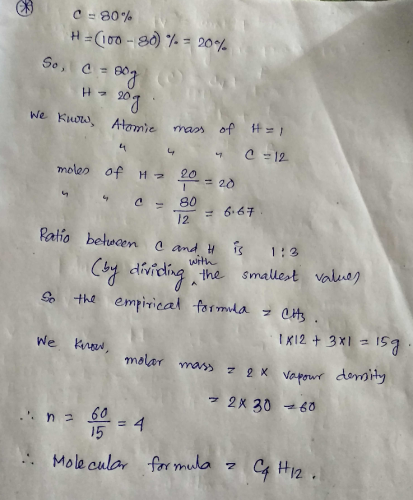 C = 80%
H = (100 - 80) % = 20%
So, C = 80g
H = 20g.
We know, Atomic mass of H = 1
" " " C = 12
moles of H = 20/1 = 20
" " C = 80/12 = 6.67
Ratio between C and H is 1:3
(by dividing with the smallest value)
So the empirical formula = CH3.
1x12 + 3x1 = 15g
We know, molar mass = 2 x vapour density
= 2 x 30 = 60
∴ n = 60/15 = 4
∴ Molecular formula = C4 H12.